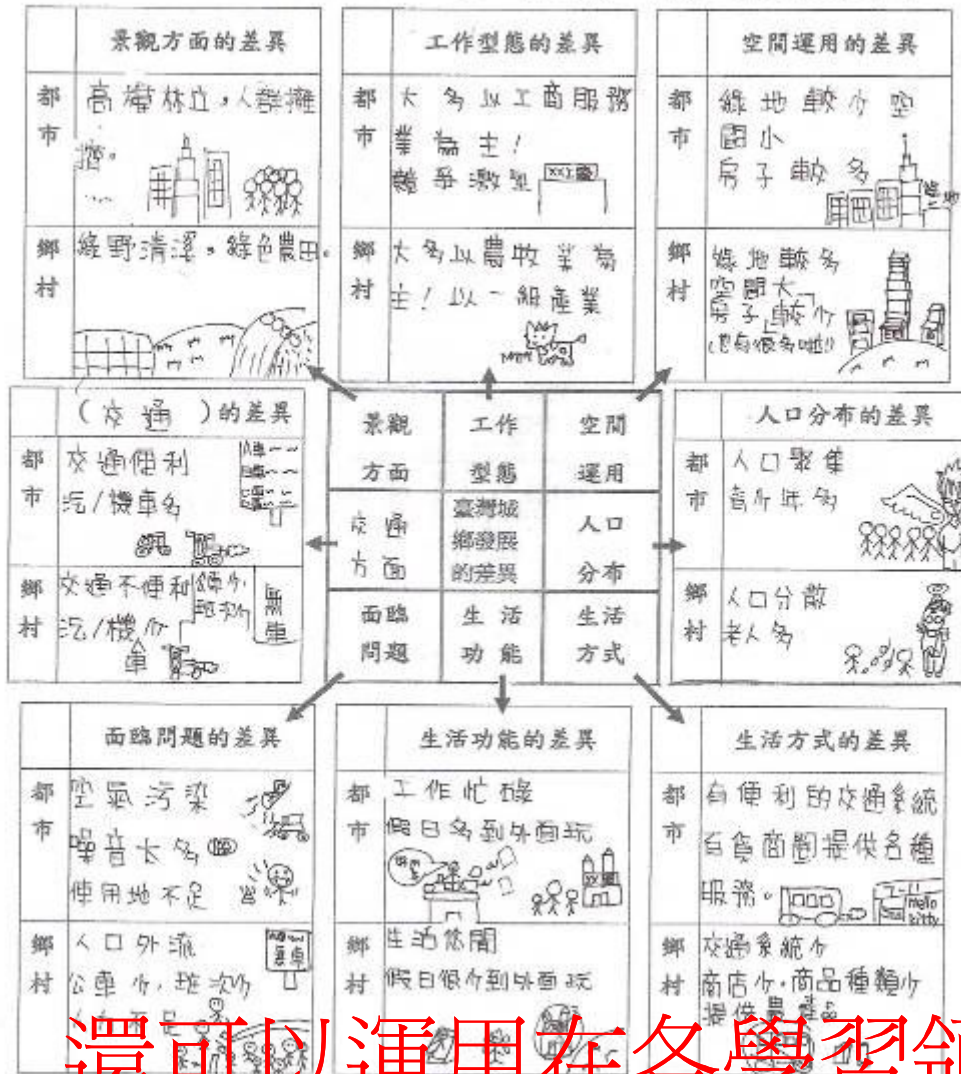 景觀方面的差異
都市
高樓林立，人群擁
擠。
鄉村
綠野清溪，綠色農田。
工作型態的差異
都市
大多以工商服務
業為主！
競爭激烈
鄉村
大多以農牧業為
主！以一級產業
空間運用的差異
都市
綠地較少空
間小
房子較多
鄉村
綠地較多
空間大
房子較少
(也有很多啦!!)
（交通）的差異
都市
交通便利
汽/機車多
鄉村
交通不便利
汽/機少
車
班次少
景觀方面
工作型態
空間運用
交通方面
臺灣城鄉發展的差異
人口分布
面臨問題
生活功能
生活方式
人口分布的差異
都市
人口聚集
青少年多
鄉村
人口分散
老人多
面臨問題的差異
都市
空氣污染
噪音太多
使用地不足
鄉村
人口外流
公車少，班次少
生活功能的差異
都市
工作忙碌
假日多到外面玩
鄉村
生活悠閒
假日很少到外面玩
生活方式的差異
都市
有便利的交通系統
百貨商圈提供各種
服務。
Hello
kitty
鄉村
交通系統少
商店少，商品種類少
提供農產品
還可以運用在各學習領